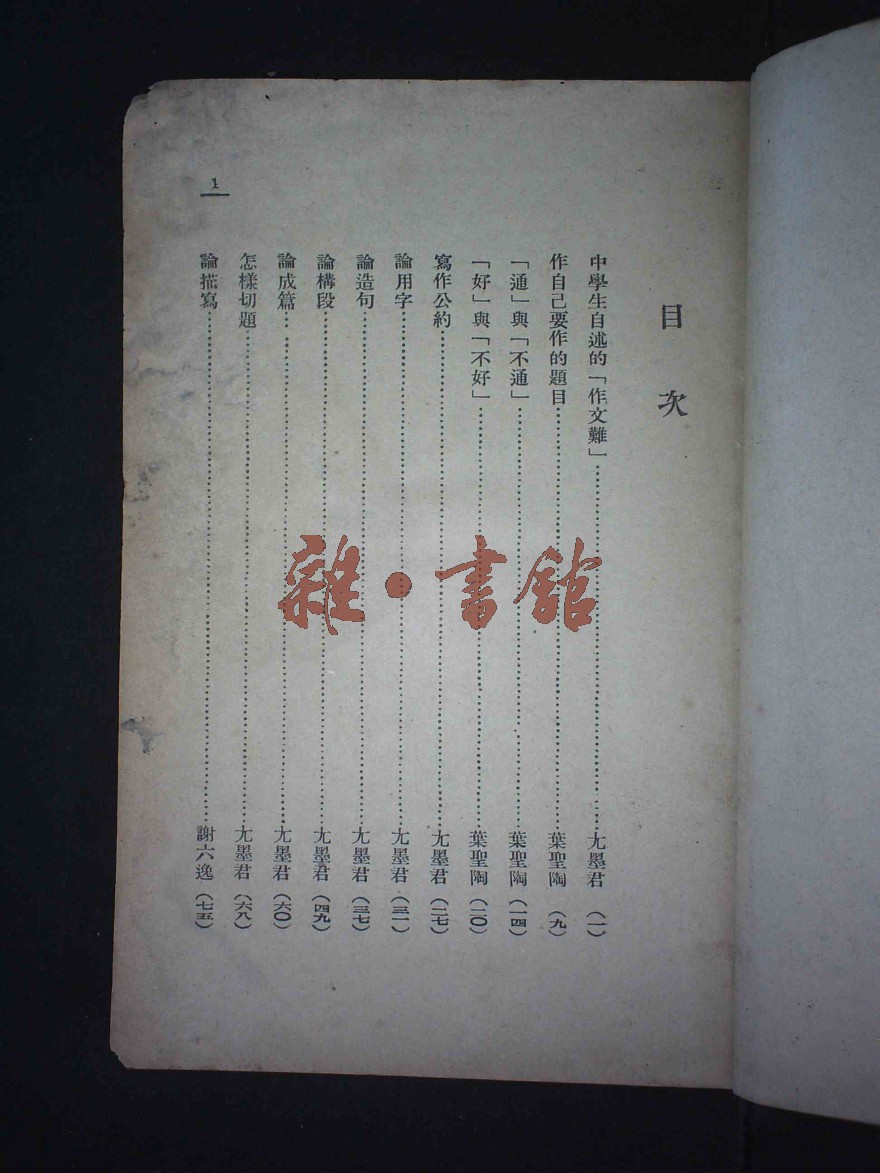 目次
中學生自述的「作文難」……尢墨君(一)
作自己要作的題目……葉聖陶(九)
「通」與「不通」……葉聖陶(一四)
「好」與「不好」……葉聖陶(二〇)
寫作公約……尢墨君(二七)
論用字……尢墨君(三一)
論造句……尢墨君(三七)
論構段……尢墨君(四九)
論成篇……尢墨君(六〇)
怎樣切題……尢墨君(六八)
論描寫……謝六逸(七五)
1
雜·書館